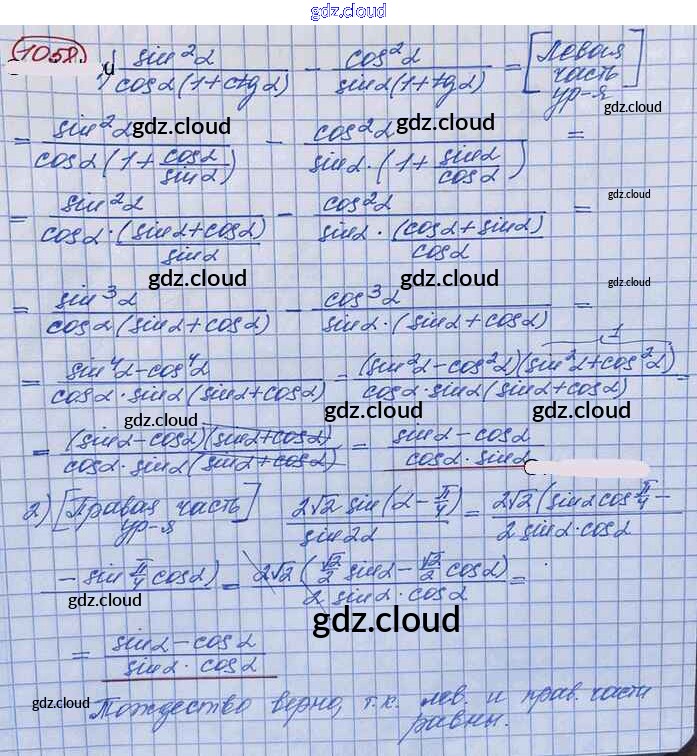 gdz.cloud
1058. 1) sin²α / cosα(1+ctgα) − cos²α / sinα(1+tgα) = [Левая часть ур-я]
gdz.cloud
= sin²α / cosα(1+cosα/sinα) − cos²α / sinα·(1+sinα/cosα) =
gdz.cloud gdz.cloud gdz.cloud
= sin²α / (cosα·(sinα+cosα)/sinα) − cos²α / (sinα·(cosα+sinα)/cosα) =
gdz.cloud
gdz.cloud gdz.cloud gdz.cloud
= sin³α / cosα(sinα+cosα) − cos³α / sinα·(sinα+cosα) =
1
= sin⁴α−cos⁴α / cosα·sinα(sinα+cosα) = (sin²α−cos²α)(sin²α+cos²α) / cosα·sinα(sinα+cosα) =
gdz.cloud gdz.cloud gdz.cloud
= (sinα−cosα)(sinα+cosα) / cosα·sinα(sinα+cosα) = sinα−cosα / cosα·sinα
2) [Правая часть ур-я] 2√2 sin(α−π/4) / sin2α = 2√2(sinα cosπ/4 − / 2 sinα·cosα
− sinπ/4 cosα) = 2√2(√2/2 sinα−√2/2 cosα) / 2 sinα·cosα =
gdz.cloud gdz.cloud
gdz.cloud
= sinα−cosα / sinα·cosα
gdz.cloud gdz.cloud
Тождество верно, т.к. лев. и прав. части
равны.